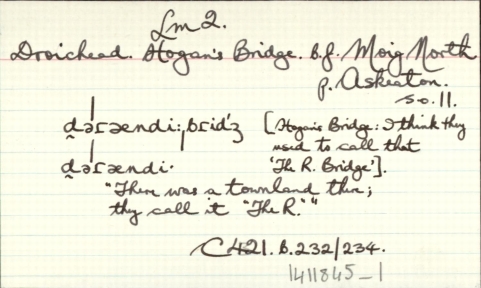 Lm 2.
Droichead. Hogan's Bridge. B.f. Moig North
p. Askeaton.
s.o. 11.
d̪əˈɾændi·ˌbɾid'ʒ [Hogan's Bridge: I think they
used to call that
d̪əˈɾændi· 'The R. Bridge'].
"There was a townland there;
they call it "The R.""
C421. B.232/234.
1411845_1